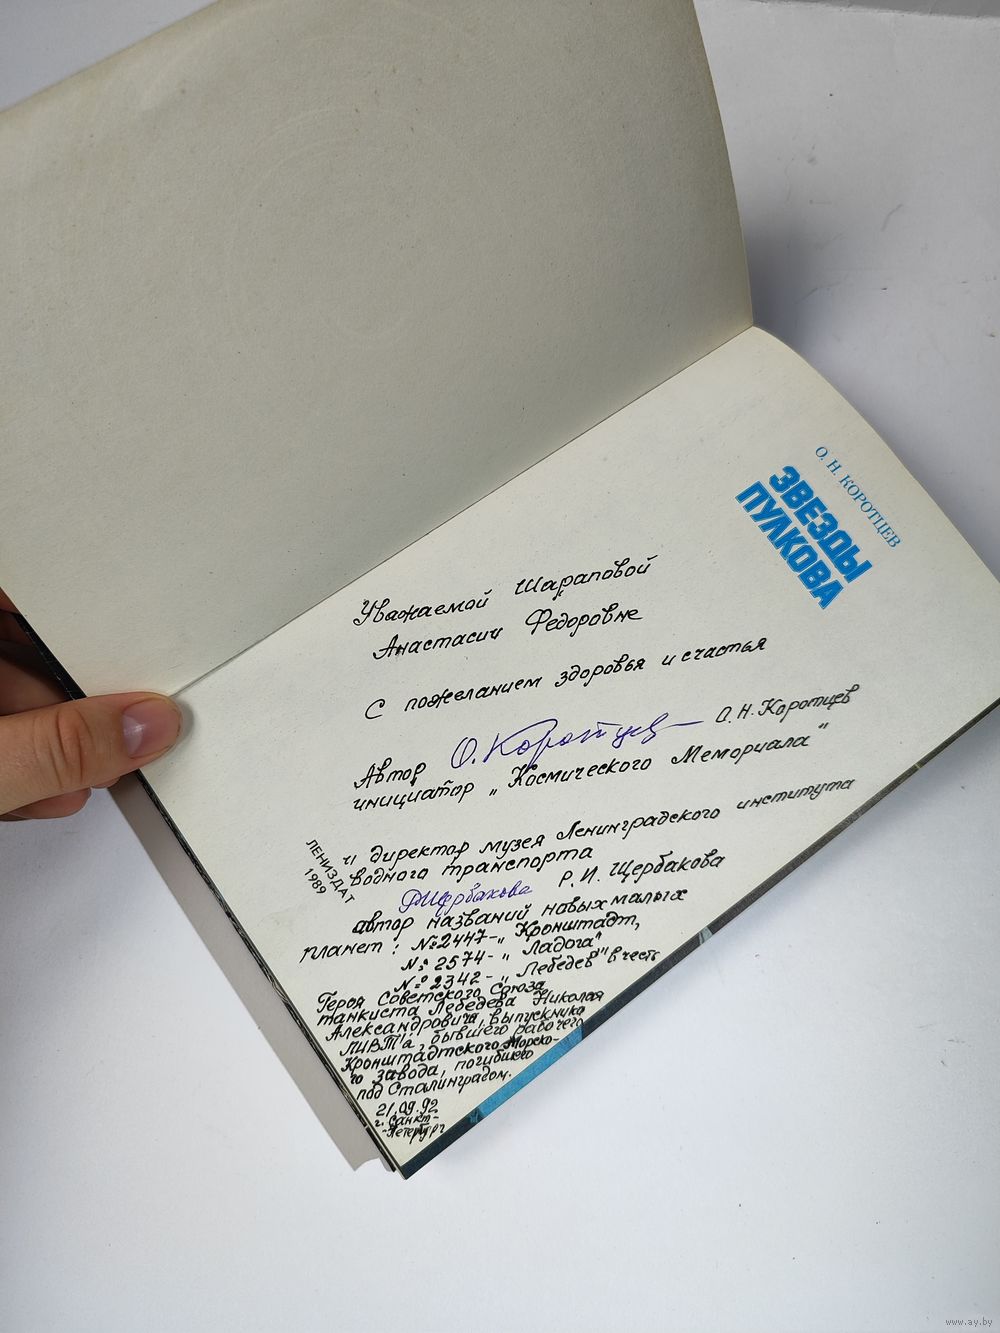 О. Н. КОРОТЦЕВ
ЗВЕЗДЫ
ПУЛКОВА
Уважаемой Шараповой
Анастасии Федоровне
С пожеланием здоровья и счастья
Автор О. Коротцев О.Н. Коротцев
инициатор „Космического Мемориала"
и директор музея Ленинградского института
водного транспорта
РИЩербакова Р.И. Щербакова
автор названий новых малых
планет: №2447-„Кронштадт,
№ 2574-„Ладога"
№ 2342-„Лебедев" в честь
Героя Советского Союза
танкиста Лебедева Николая
Александровича, выпускника
ЛИВТ'а, бывшего рабочего
Кронштадтского Морско-
го завода, погибшего
под Сталинградом.
21.09.92
г. Санкт-
-Петербург
ЛЕНИЗДАТ
1989
www.ay.by